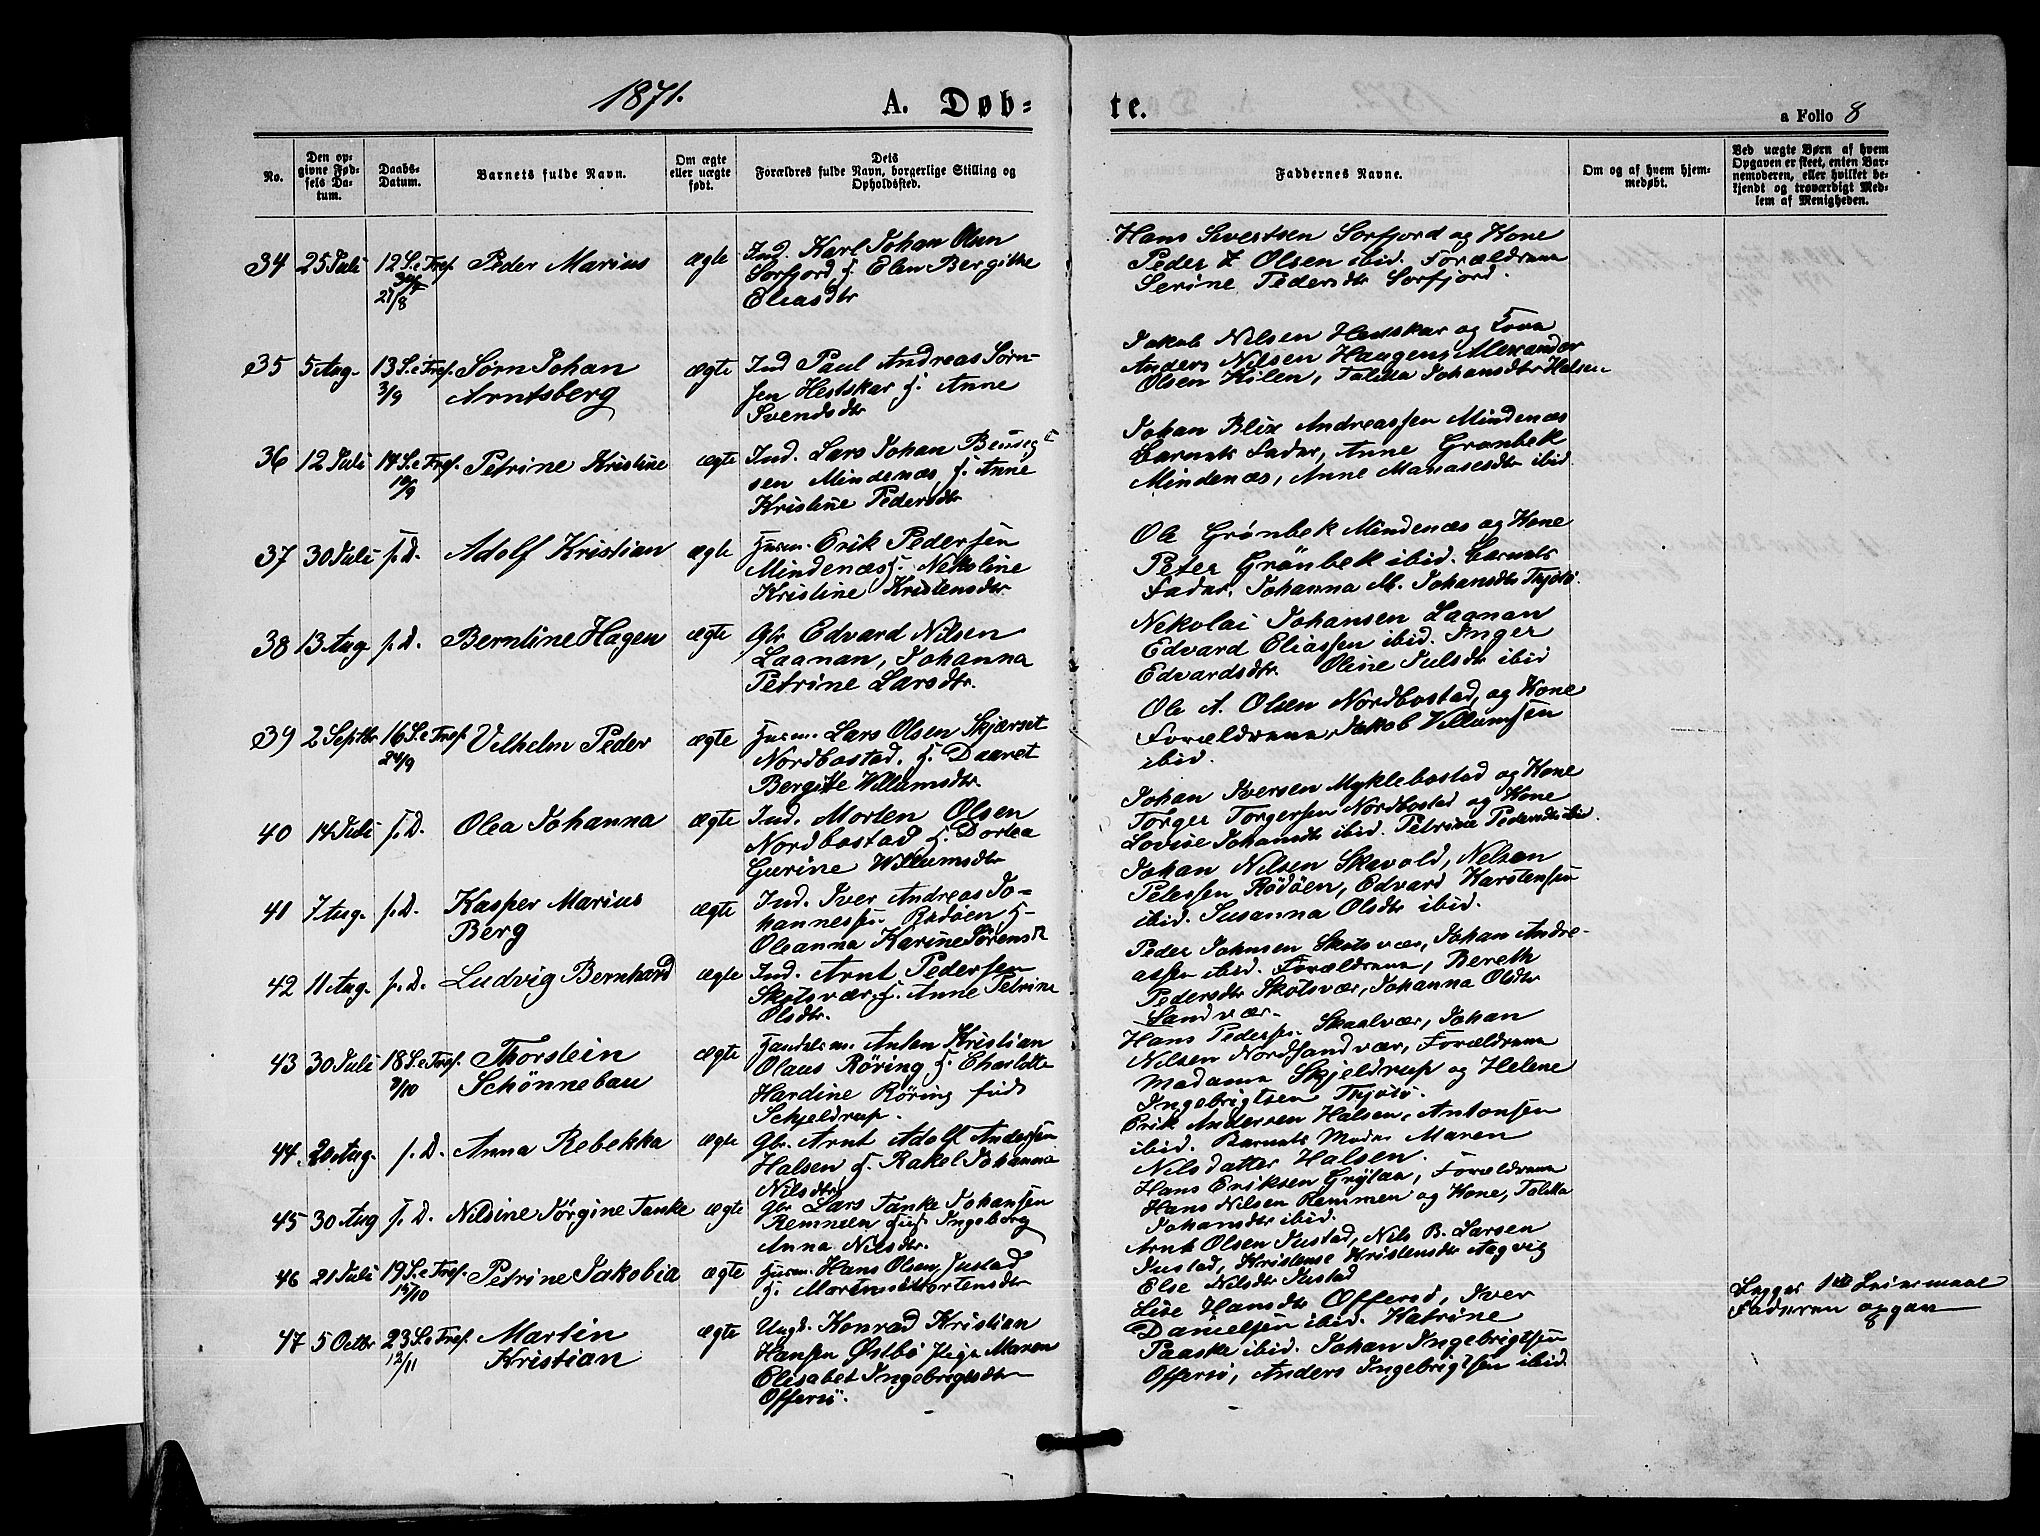 1871.
A. Døb-
te.
a Folio 8
No.
Den op-
givne Fød-
sels Da-
tum.
Daabs-
Datum.
Barnets fulde Navn.
Om ægte
eller uægte
født.
Dets
Forældres fulde Navn, borgerlige Stilling og
Opholdssted.
Faddernes Navne.
Om og af hvem hjem-
medøbt.
Ved uægte Børn af hvem
Opgaven er skeet, enten Bar-
nemoderen, eller hvilket be-
kjendt og troværdigt Med-
lem af Menigheden.
34 25 Juli 12 S. e Tref. Peder Marius ægte Ind. Karl Johan Olsen
Sorfjord H. Elen Bergitte
27/8
Eliasdtr
Hans Sivertsen Sorfjord og Kone
Peder Z Olsen ibid. Forældrene
Serine Pedersdtr Sorfjord.
35 5 Aug. 13 S. e Tref. Sørn Johan ægte Ind Paul Andreas Sørn-
3/9 Arntsberg sen Hestskar H. Anne
Svendsdtr
Jakob Nilsen Hestskar og Kone
Anders Nilsen Haugens Alexander
Olsen Kilen, Talitta Johansdtr Halsen
36 12 Juli 14 S. e Tref. Petrine Kristine ægte Ind. Lars Johan
10/9 sen Mindenæs, H. Anne
Kristine Pedersdtr
Johan Blix Andreassen Mindenæs
Barnets Fader, Anne Grønbek
Mindenæs, Anne Manasesdtr ibid
37 30 Juli s. D. Adolf Kristian ægte Husm. Erik Pedersen
Mindenæs H. Nekoline
Kristine Kristensdtr
Ole Grønbek Mindenæs og Kone
Peter Grönbek ibid. Barnets
Fader, Johanna M. Johansdtr Thjøtö.
38 13 Aug s. D. Berntine Hagen ægte Gbr Edvard Nilsen
Laanan, Johanna
Petrine Larsdtr.
Nekolai Johansen Laanan
Edvard Eliassen ibid. Inger
Edvardsdtr. Oline Julsdtr ibid
39 2 Septbr 16 S. e Tref. Vilhelm Peder ægte Husm. Lars Olsen Skjærset
24/9 Nordbostad, H. Daaret
Bergitte Willumsdtr
Ole A. Olsen Nordbostad, og Kone
Forældrene, Jakob Villumsen
ibid.
40 14 Juli s. D. Olea Johanna ægte Ind. Morten Olsen
Nordbostad H. Dortea
Gurine Willumsdtr
Johan Iversen Myklebostad og Kone
Torger Torgersen Nordbostad og Kone
Lovise Johansdtr ibid. Petrine Pedersdtr ibid.
41 7 Aug. s. D. Kasper Marius ægte Ind. Iver Andreas Jo-
Berg hannessen Rødöen H.
Oleanna Karine Sørensdtr
Johan Nilsen Skavold, Nelsen
Petersen Rödöen, Edvard Karstensen
ibid. Susanna Olsdtr ibid.
42 11 Aug. s. D. Ludvig Bernhard ægte Ind. Arnt Pedersen
Skotsvær, H. Anne Petrine
Olsdtr.
Peder Johnsen Skotsvær, Johan Andre-
assen ibid. Forældrene, Bereth
Pedersdtr Skotsvær, Johanna Olsdtr
Sandvær.
43 30 Juli 18 S. e Tref. Thorstein ægte Handelsm. Anton Kristian
8/10 Schönnebau Olaus Röring H. Charlotte
Hardine Röring født
Schjeldrup.
Hans Pedersen Skaalvær, Johan
Nilsen Nordsandvær, Forældrene
Madame Skjeldrup og Helene
Ingebrigtsen Thjötö.
44. 20 Aug. s. D. Anna Rebekka ægte Gbr. Arnt Adolf Andersen
Halsen H. Rakel Johanna
Nilsdtr
Erik Andersen Halsen, Antonsen
ibid. Barnets Moder Maren
Nilsdatter Halsen.
45 30 Aug s. D. Nilsine Jörgine Tanke ægte Gbr. Lars Tanke Johansen
Remmen H. Ingeborg
Anna Nilsdtr.
Hans Eriksen Grytaa, Forældrene
Hans Nilsen Remmen og Kone, Talitta
Johansdtr ibid.
46 21 Juli 19 S. e Tref. Petrine Jakobia ægte Husm. Hans Olsen Justad
15/10 H. Mortensdtr
Arnt Olsen Justad, Nils B. Larsen
Justad, Kristense Kristensdtr Aagvig
Else Nilsdtr Justad
47 5 Octbr 23 S. e Tref. Martin ægte Ungk. Konrad Kristian
12/11 Kristian Hansen Østbö Pige Maren
Elisabet Ingebrigtsdtr
Offersö.
Lise Hansdtr Offersö, Iver
Danielsen ibid. Katrine
Paaske ibid. Johan Ingebrigtsen
Offersö, Anders Ingebrigtsen ibid.
Begges 1ste Leiermaal
Faderen opgav